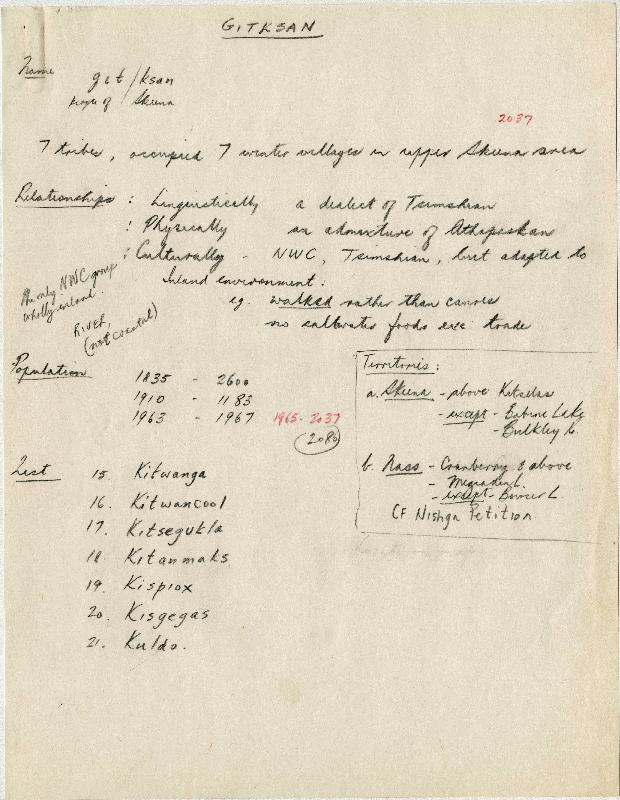 GITKSAN
Name
git / ksan
people of Skeena
2037
7 tribes, occupied 7 winter villages in upper Skeena area
Relationships : Linguistically a dialect of Tsimshian
: Physically an admixture of Athapaskan
: Culturally - NWC, Tsimshian, but adapted to
Inland environment.
the only NWC group
wholly inland.
RIVER,
(not coastal)
eg. walked rather than canoes
no saltwater foods exc trade
Population
1835 - 2600
1910 - 1183
1963 - 1967 1965 - 2037
2080
Territories :
a. Skeena - above Kitselas
- except - Babine Lake
- Bulkley R.
b. Nass - Cranberry & above
- Meziaden L.
- except - Bowser L.
CF Nishga Petition
List
15. Kitwanga
16. Kitwancool
17. Kitsegukla
18. Kitanmaks
19. Kispiox
20. Kisgegas
21. Kuldo.